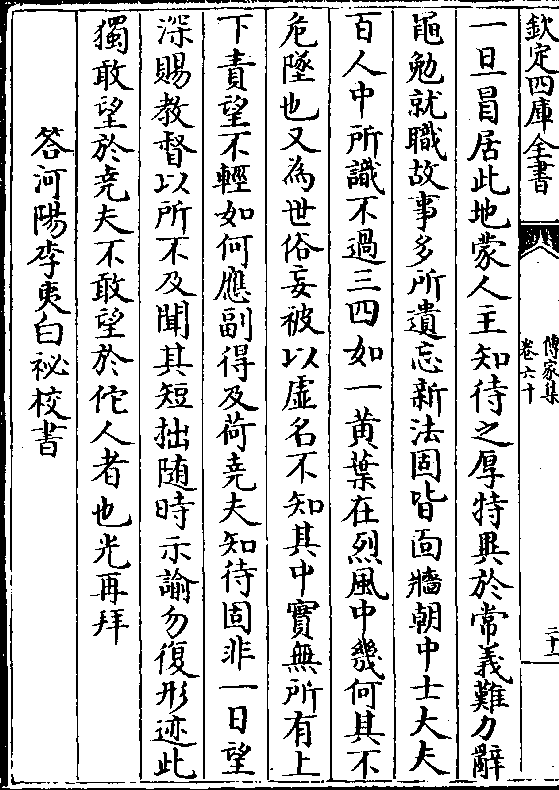 欽定四庫全書
傳家集
卷六十
二十二
一旦冒居此地蒙人主知待之厚特異於常義難力辭
黽勉就職故事多所遺忘新法固皆面牆朝中士大夫
百人中所識不過三四如一黄葉在烈風中幾何其不
危墜也又為世俗妄被以虛名不知其中實無所有上
下責望不輕如何應副得及荷堯夫知待固非一日望
深賜教督以所不及聞其短拙随時示諭勿復形迹此
獨敢望於堯夫不敢望於佗人者也光再拜
答河陽李夷白祕校書